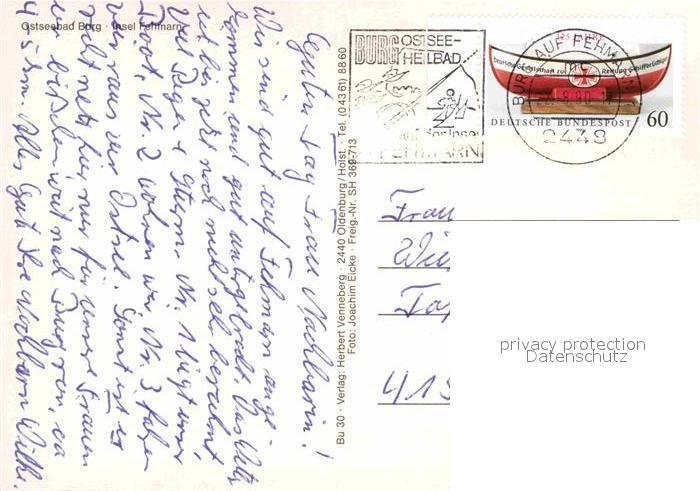 Ostseebad Burg · Insel Fehmarn
Guten Tag Frau Nachbarin!
Wir sind gut auf Fehmarn ange-
kommen und gut untergebracht. Das Wetter
ist bis jetzt noch nicht sehr berühmt
viel Regen + Sturm. Nr. 1 liegt unser
Boot Nr. 2 wohnen wir, Nr. 3 fahren
wir raus zur Ostsee. Sonst ist es
sehr nett hier nur für unsere Frauen
ein bißchen weit nach Burg rein, ca
4-5 km. Alles Gute Ihre Nachbarn
Bu 30 · Verlag: Herbert Venneberg · 2440 Oldenburg/Holst. · Tel. (04361) 8860
Foto: Joachim Eicke · Freig.-Nr. SH 369-713
BURG OSTSEE-
HEILBAD
auf der Insel
FEHMARN
BURG AUF FEHMARN
2448
125 JAHRE
Deutsche Gesellschaft zur Rettung Schiffbrüchiger
DEUTSCHE BUNDESPOST 60
Frau
privacy protection
Datenschutz